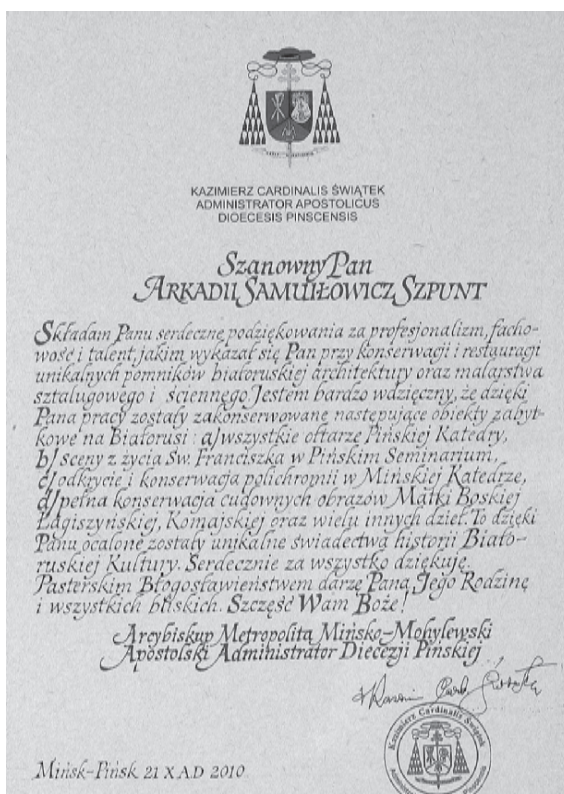 KAZIMIERZ CARDINALIS ŚWIĄTEK
ADMINISTRATOR APOSTOLICUS
DIOECESIS PINSCENSIS
Szanowny Pan
ARKADII SAMUIŁOWICZ SZPUNT
Składam Panu serdeczne podziękowania za profesjonalizm, facho-
wość i talent, jakim wykazał się Pan przy konserwacji i restauracji
unikalnych pomników białoruskiej architektury oraz malarstwa
sztalugowego i ściennego. Jestem bardzo wdzięczny, że dzięki
Pana pracy zostały zakonserwowane następujące obiekty zabyt-
kowe na Białorusi: a) wszystkie ołtarze Pińskiej Katedry,
b) sceny z życia Św. Franciszka w Pińskim Seminarium,
c) odkrycie i konserwacja polichromii w Mińskiej Katedrze,
d) pełna konserwacja cudownych obrazów Matki Boskiej
Łagiszyńskiej, Komajskiej oraz wielu innych dzieł. To dzięki
Panu ocalone zostały unikalne świadectwa historii Biało-
ruskiej Kultury. Serdecznie za wszystko dziękuję.
Pasterskim Błogosławieństwem darzę Pana, Jego Rodzinę
i wszystkich bliskich. Szczęść Wam Boże!
Arcybiskup Metropolita Mińsko-Mohylewski
Apostolski Administrator Diecezji Pińskiej
Kazimierz Cardinalis Świątek
Mińsk-Pińsk 21 X A.D 2010